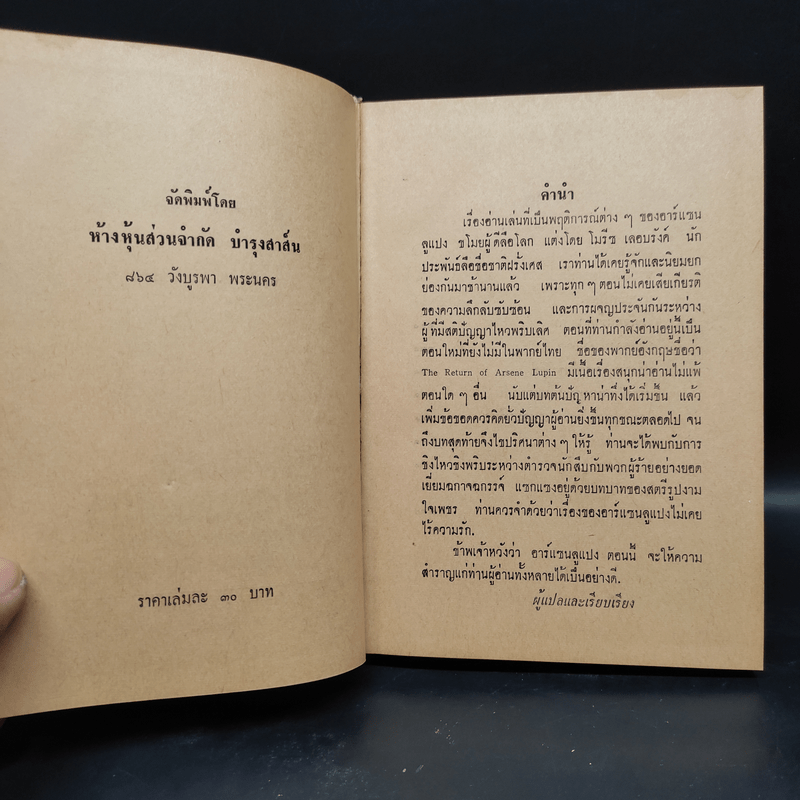 จัดพิมพ์โดย
ห้างหุ้นส่วนจำกัด บำรุงสาส์น
๘๖๔ วังบูรพา พระนคร
ราคาเล่มละ ๓๐ บาท
คำนำ
เรื่องอ่านเล่นที่เป็นพฤติการณ์ต่าง ๆ ของอาร์แซน
ลูแปง ขโมยผู้ดีลือโลก แต่งโดย โมรีซ เลอบรังค์ นัก
ประพันธ์ลือชื่อชาติฝรั่งเศส เราท่านได้เคยรู้จักและนิยมยก
ย่องกันมาช้านานแล้ว เพราะทุก ๆ ตอนไม่เคยเสียเกียรติ
ของความลึกลับซับซ้อน และการผจญประจันกันระหว่าง
ผู้ที่มีสติปัญญาไหวพริบเลิศ ตอนที่ท่านกำลังอ่านอยู่นี้เป็น
ตอนใหม่ที่ยังไม่มีในพากย์ไทย ชื่อของพากย์อังกฤษชื่อว่า
The Return of Arsene Lupin มีเนื้อเรื่องสนุกน่าอ่านไม่แพ้
ตอนใด ๆ อื่น นับแต่บทต้นปัญหาน่าทึ่งได้เริ่มขึ้น แล้ว
เพิ่มข้อขอดควรคิดยั่วปัญญาผู้อ่านยิ่งขึ้นทุกขณะตลอดไป จน
ถึงบทสุดท้ายจึงไขปริศนาต่าง ๆ ให้รู้ ท่านจะได้พบกับการ
ชิงไหวชิงพริบระหว่างตำรวจนักสืบกับพวกผู้ร้ายอย่างยอด
เยี่ยมฉกาจฉกรรจ์ แซกแซงอยู่ด้วยบทบาทของสตรีรูปงาม
ใจเพชร ท่านควรจำด้วยว่าเรื่องของอาร์แซนลูแปงไม่เคย
ไร้ความรัก.
ข้าพเจ้าหวังว่า อาร์แซนลูแปง ตอนนี้ จะให้ความ
สำราญแก่ท่านผู้อ่านทั้งหลายได้เป็นอย่างดี.
ผู้แปลและเรียบเรียง